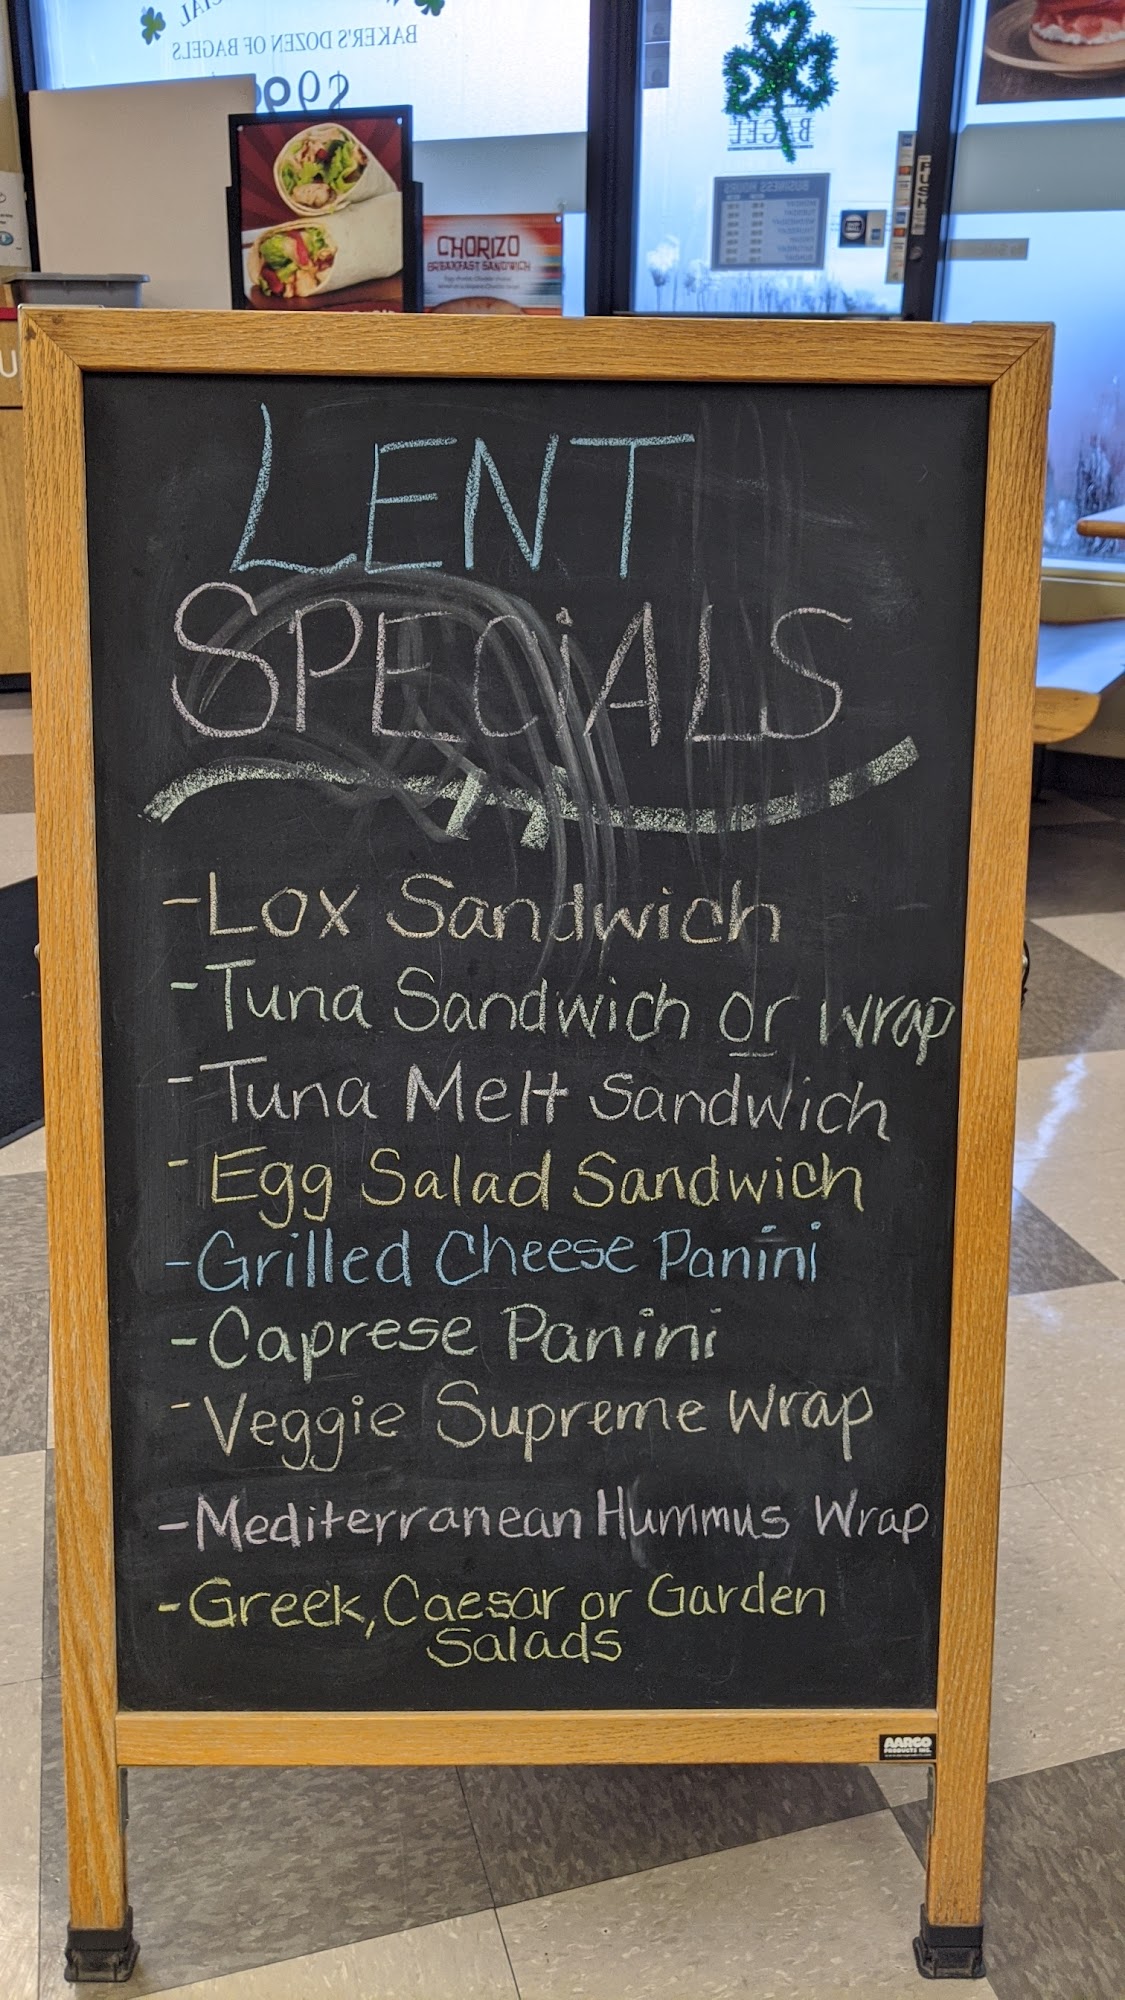 BAKER'S DOZEN OF BAGELS
BAGEL
BUSINESS HOURS
MONDAY
TUESDAY
WEDNESDAY
THURSDAY
FRIDAY
SATURDAY
SUNDAY
PUSH
CHORIZO
BREAKFAST SANDWICH
LENT
SPECiALS
-Lox Sandwich
-Tuna Sandwich or Wrap
-Tuna Melt Sandwich
-Egg Salad Sandwich
-Grilled Cheese Panini
-Caprese Panini
-Veggie Supreme Wrap
-Mediterranean Hummus Wrap
-Greek, Caesar or Garden
Salads
AARCO
PRODUCTS INC.